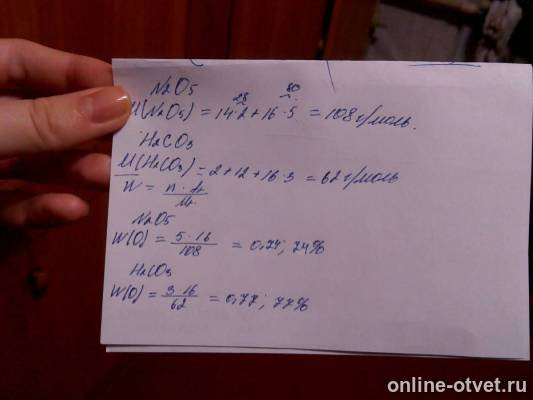 N₂O₅
28 80
M(N₂O₅) = 14·2+16·5 = 108 г/моль.
H₂CO₃
M(H₂CO₃) = 2+12+16·3 = 62 г/моль
W = n·Ar/Mr
N₂O₅
W(O) = 5·16/108 = 0,74; 74%
H₂CO₃
W(O) = 3·16/62 = 0,77; 77%
online-otvet.ru